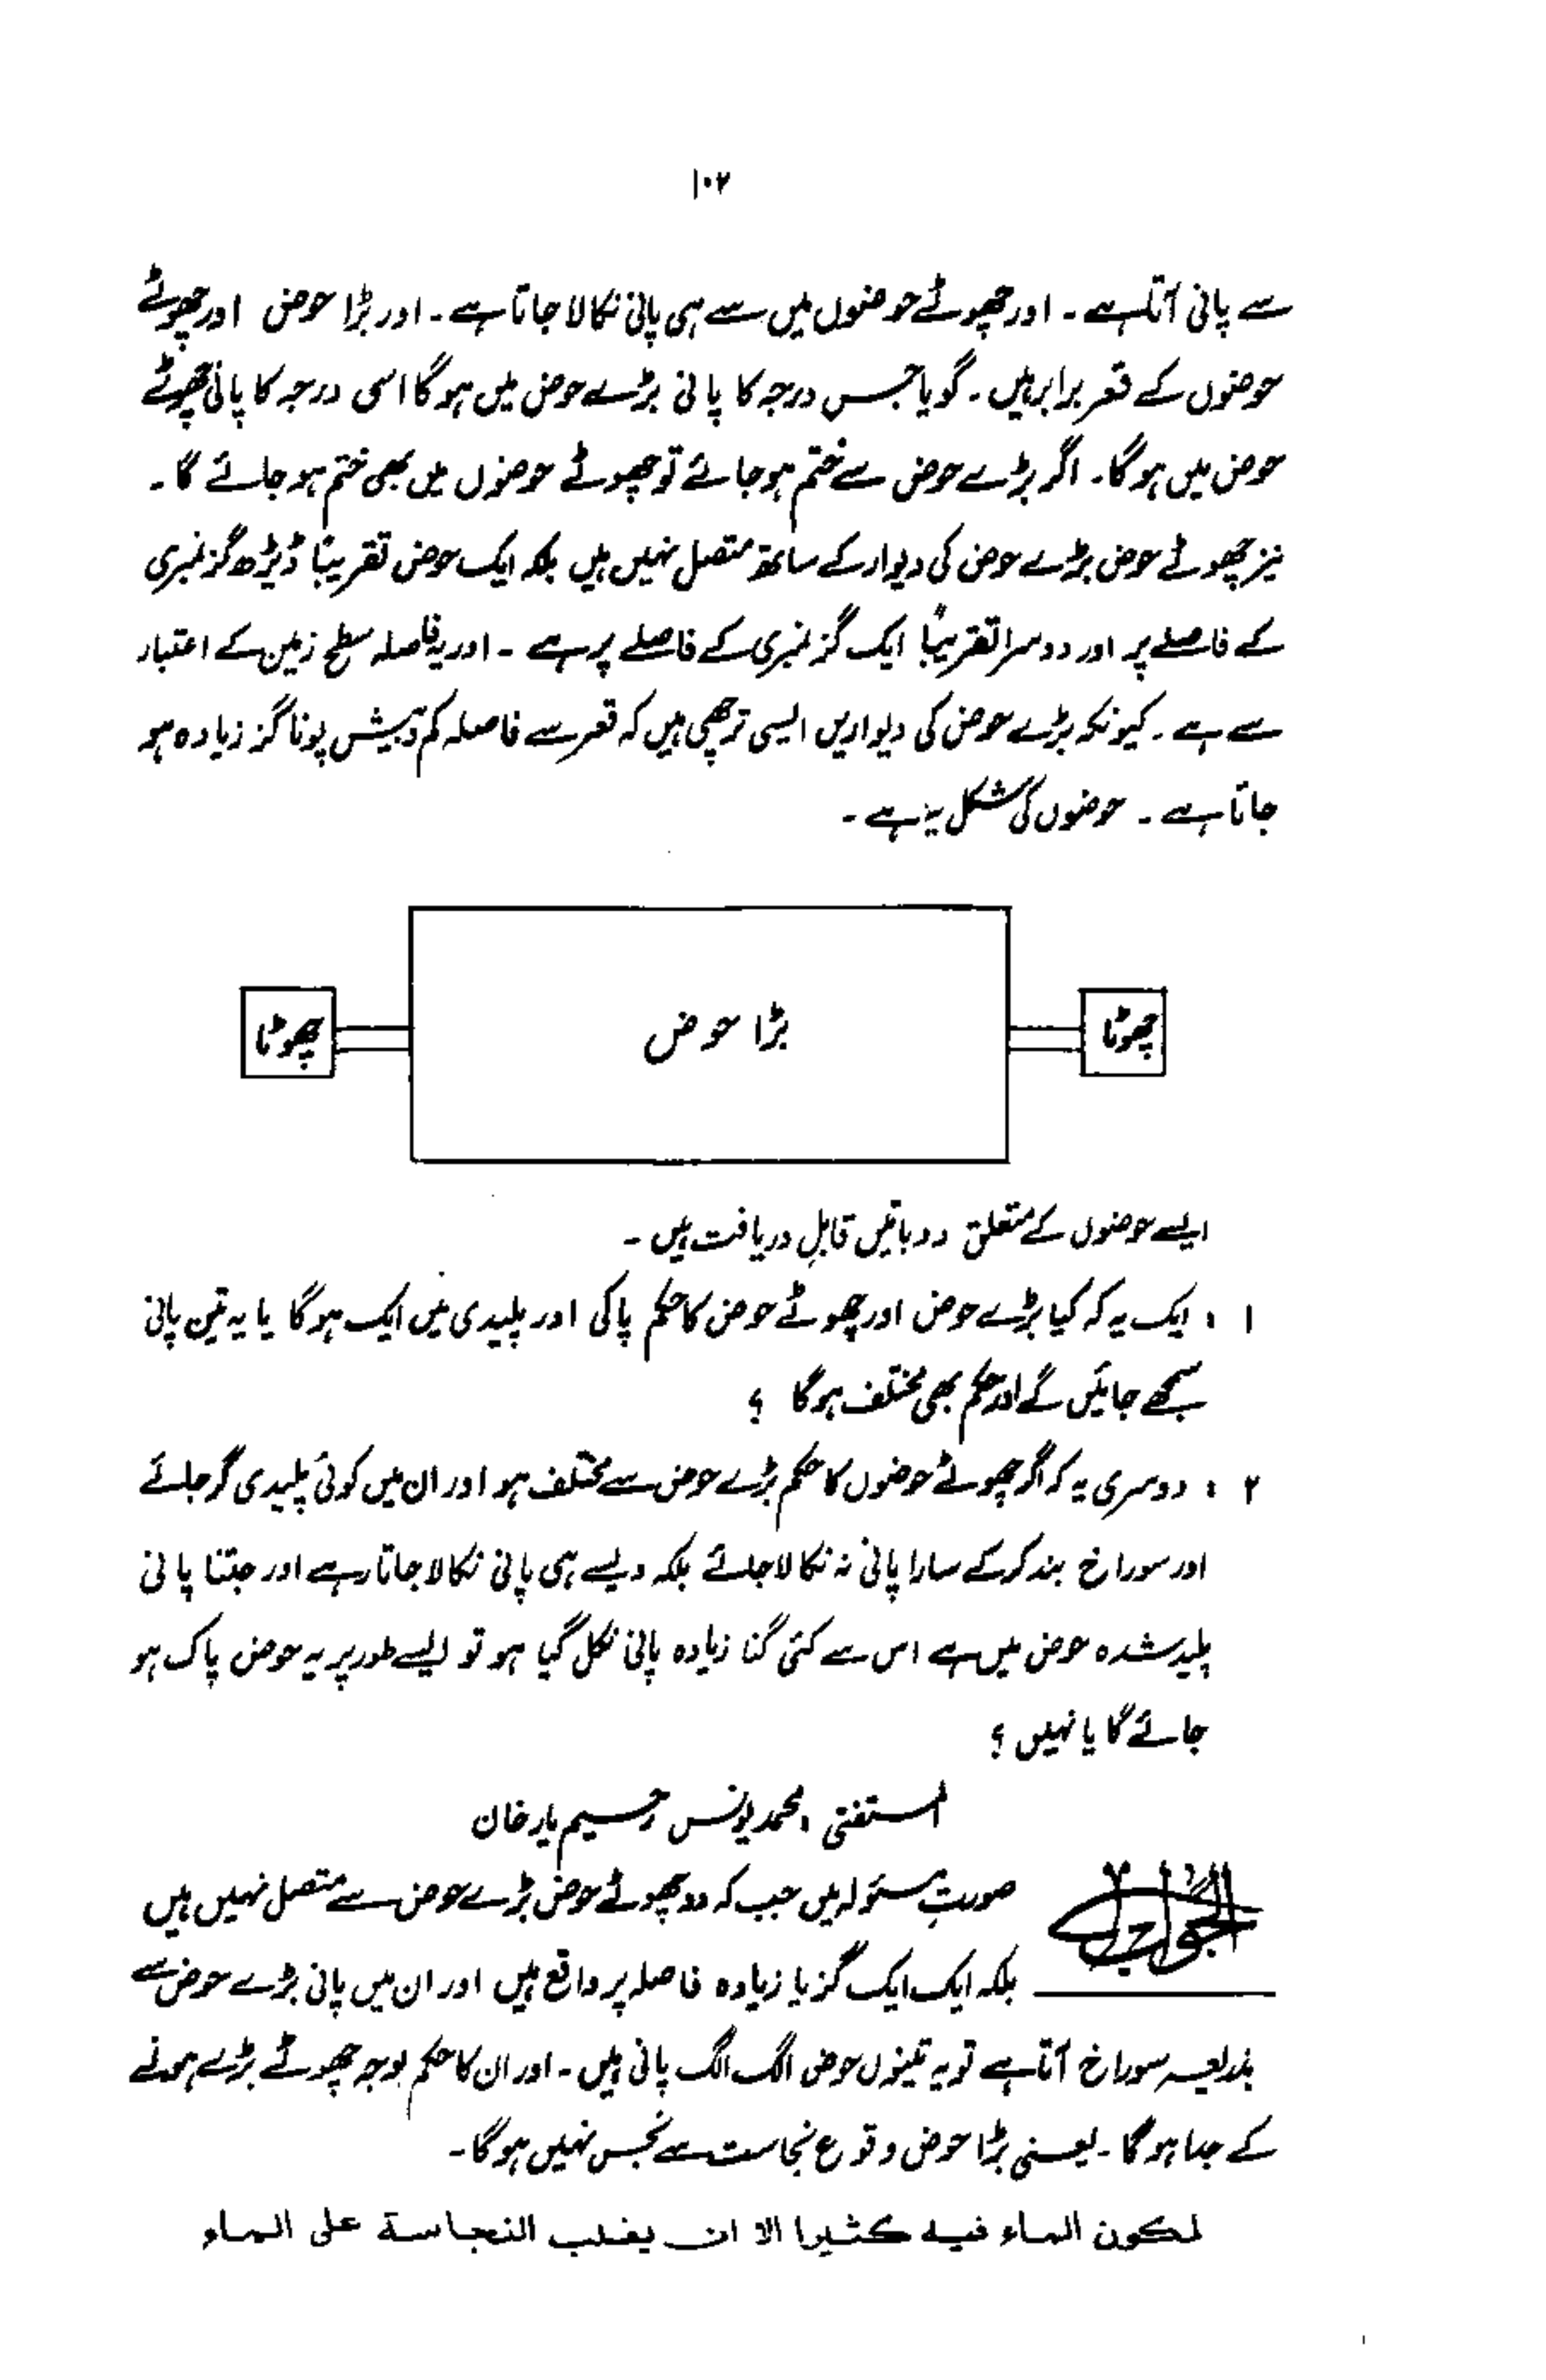 ۱۰۲
سے پانی آتا ہے ۔ اور چھوٹے حوضوں میں سے ہی پانی نکالا جاتا ہے ۔ اور بڑا حوض اور چھوٹے
حوضوں کے قعر برابر ہیں ۔ گویا جس درجہ کا پانی بڑے حوض میں ہو گا اسی درجہ کا پانی چھوٹے
حوض میں ہو گا ۔ اگر بڑے حوض سے ختم ہو جائے تو چھوٹے حوضوں میں بھی ختم ہو جائے گا ۔
نیز چھوٹے حوض بڑے حوض کی دیوار کے ساتھ متصل نہیں ہیں بلکہ ایک حوض تقریباً ڈیڑھ گز نمبری
کے فاصلے پر اور دوسرا تقریباً ایک گز نمبری کے فاصلے پر ہے ۔ اور یہ فاصلہ سطح زمین کے اعتبار
سے ہے ۔ کیونکہ بڑے حوض کی دیواریں ایسی ترچھی ہیں کہ قعر سے فاصلہ کم و بیش پونا گز زیادہ ہو
جاتا ہے ۔ حوضوں کی شکل یہ ہے ۔
چھوٹا
بڑا حوض
چھوٹا
ایسے حوضوں کے متعلق دو باتیں قابلِ دریافت ہیں ۔
۱ : ایک یہ کہ کیا بڑے حوض اور چھوٹے حوض کا حکم پاکی اور پلیدی میں ایک ہو گا یا یہ تین پانی
سمجھے جائیں گے اور حکم بھی مختلف ہو گا ؟
۲ : دوسری یہ کہ اگر چھوٹے حوضوں کا حکم بڑے حوض سے مختلف ہو اور ان میں کوئی پلیدی گر جائے
اور سوراخ بند کر کے سارا پانی نہ نکالا جائے بلکہ ویسے ہی پانی نکالا جاتا رہے اور جتنا پانی
پلید شدہ حوض میں ہے اس سے کئی گنا زیادہ پانی نکل گیا ہو تو ایسے طور پر یہ حوض پاک ہو
جائے گا یا نہیں ؟
المستفتی ، محمد یونس رحیم یار خان
الجواب صورتِ مسئولہ میں جب کہ دو چھوٹے حوض بڑے حوض سے متصل نہیں ہیں
بلکہ ایک ایک گز یا زیادہ فاصلہ پر واقع ہیں اور ان میں پانی بڑے حوض سے
بذریعہ سوراخ آتا ہے تو یہ تینوں حوض الگ الگ پانی ہیں ۔ اور ان کا حکم بوجہ چھوٹے بڑے ہونے
کے جدا ہو گا ۔ یعنی بڑا حوض وقوع نجاست سے نجس نہیں ہو گا ۔
لكون الماء فيه كثيرا الا ان يغلب النجاسة على الماء